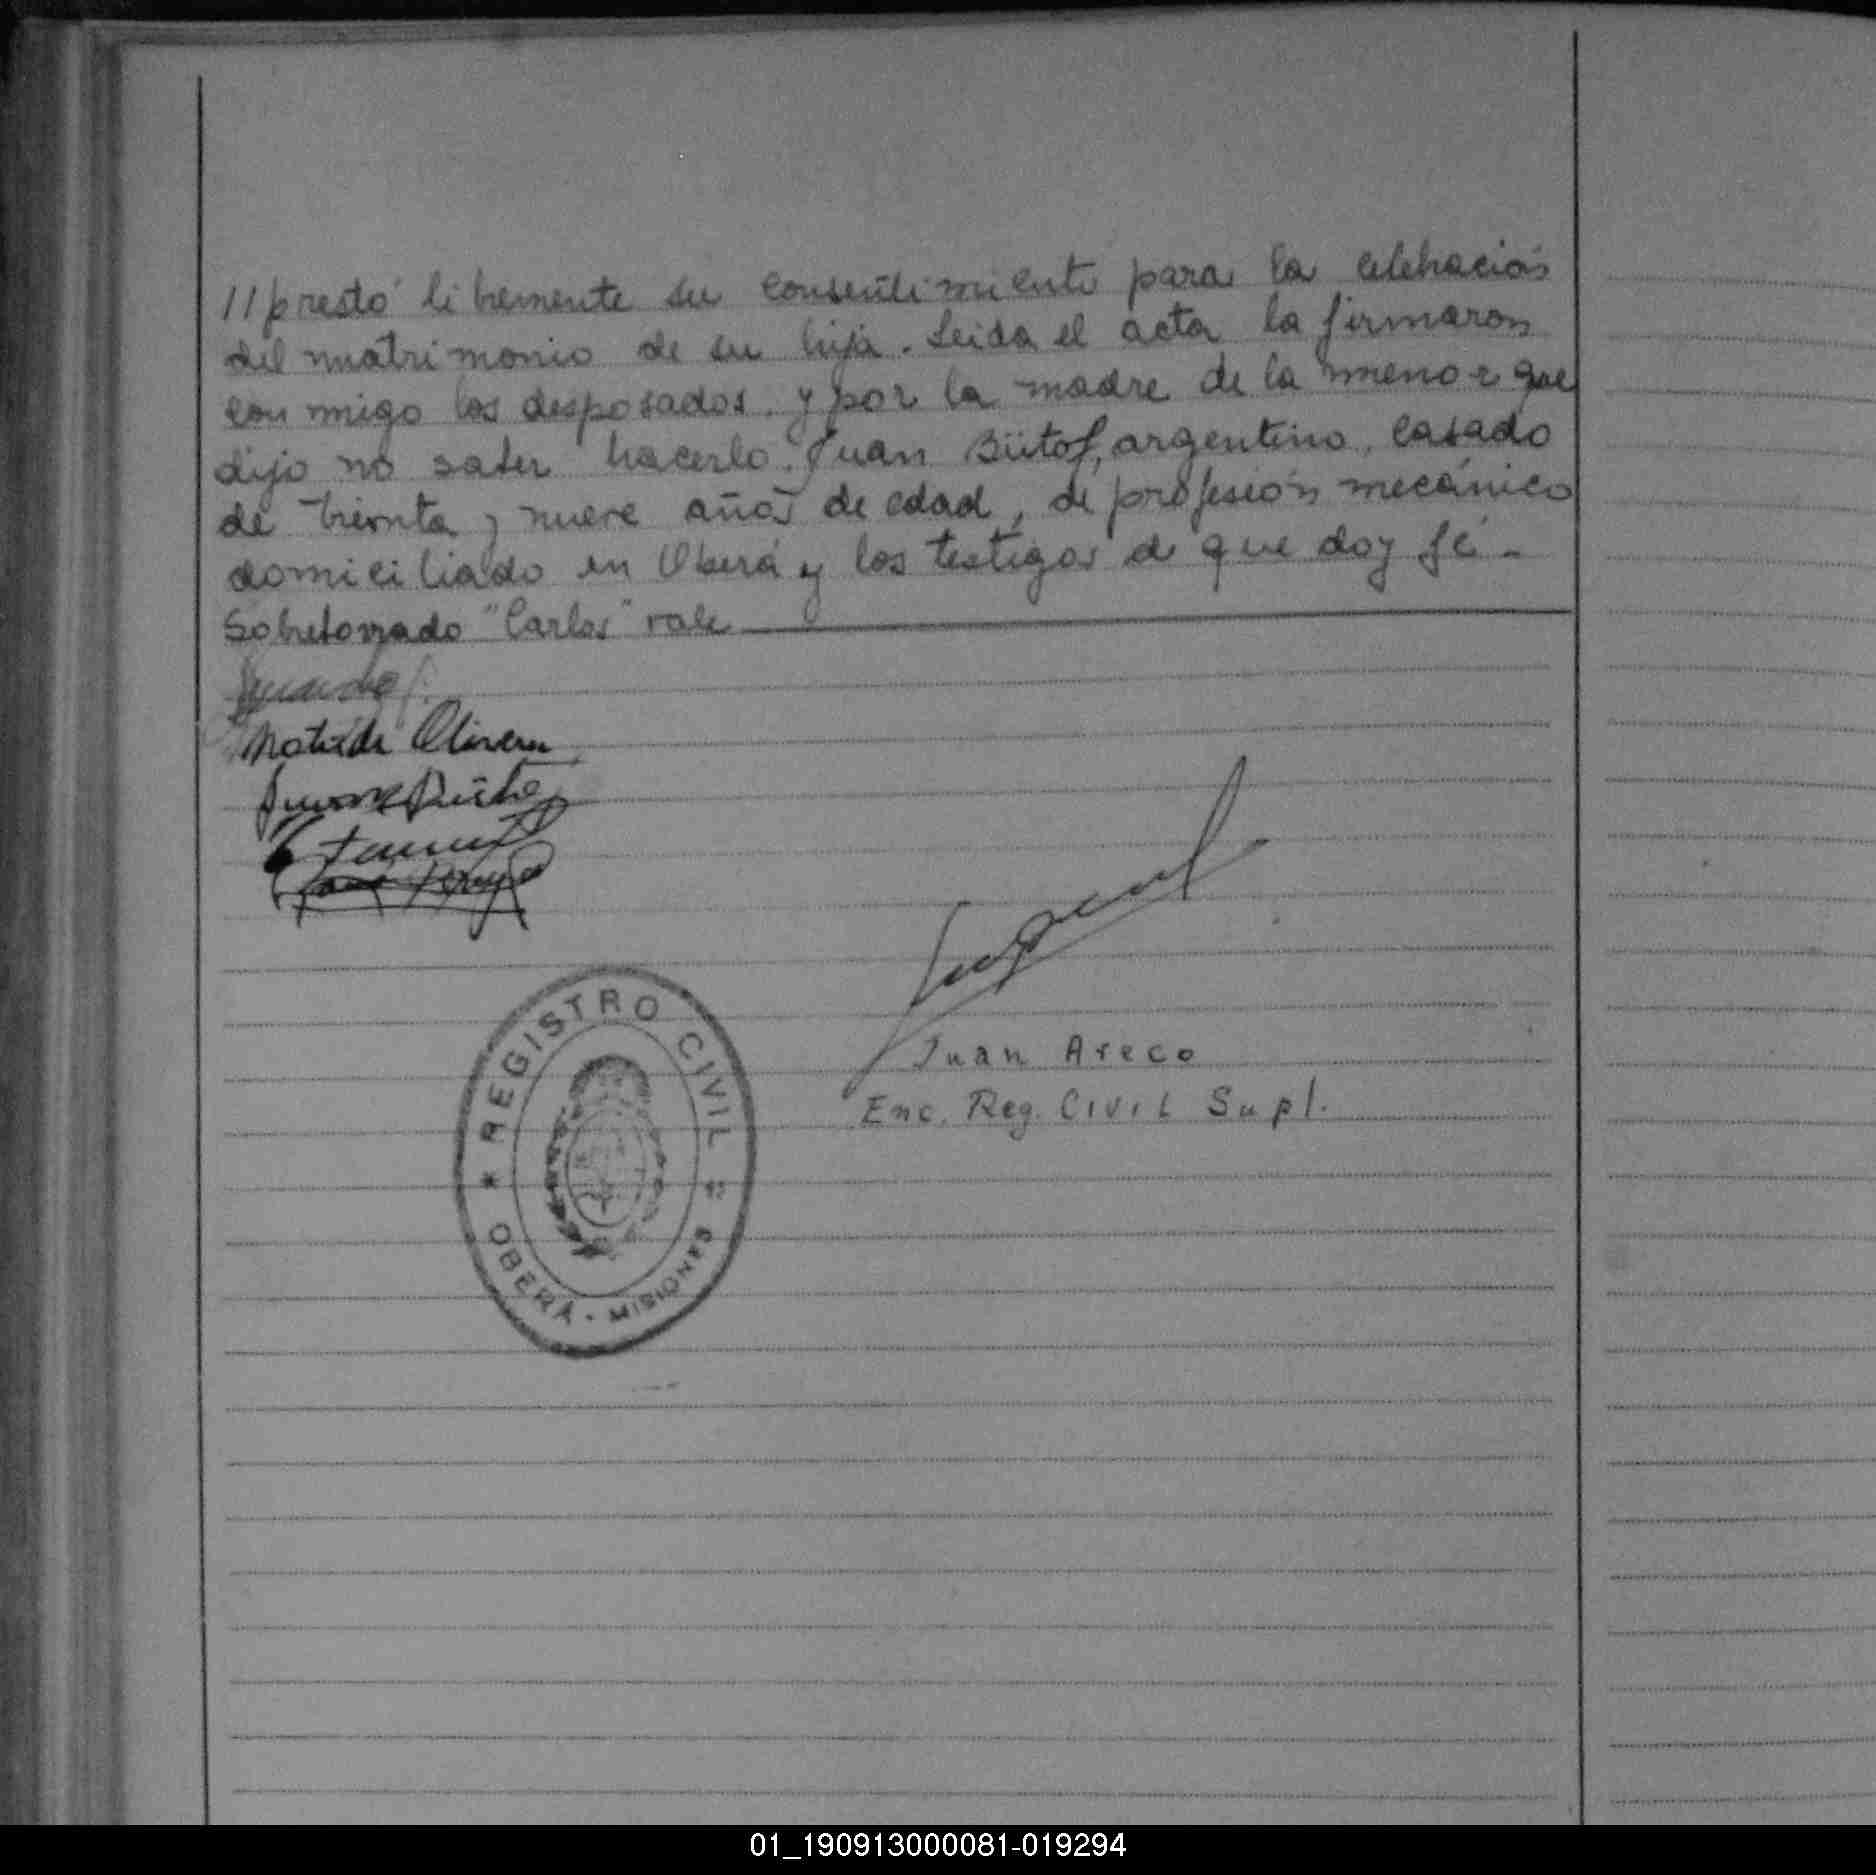 //prestó libremente su consentimiento para la celebración
del matrimonio de su hija. Leida el acta la firmaron
con migo los desposados, y por la madre de la menor que
dijo no saber hacerlo. Juan Bütof, argentino, casado
de treinta y nueve años de edad, de profesión mecánico
domiciliado en Oberá y los testigos de que doy fé -
Sobreborrado "Carlos" vale
Matilde Olivera
REGISTRO CIVIL
OBERÁ - MISIONES
Juan Areco
Enc. Reg. Civil Supl.
01_190913000081-019294